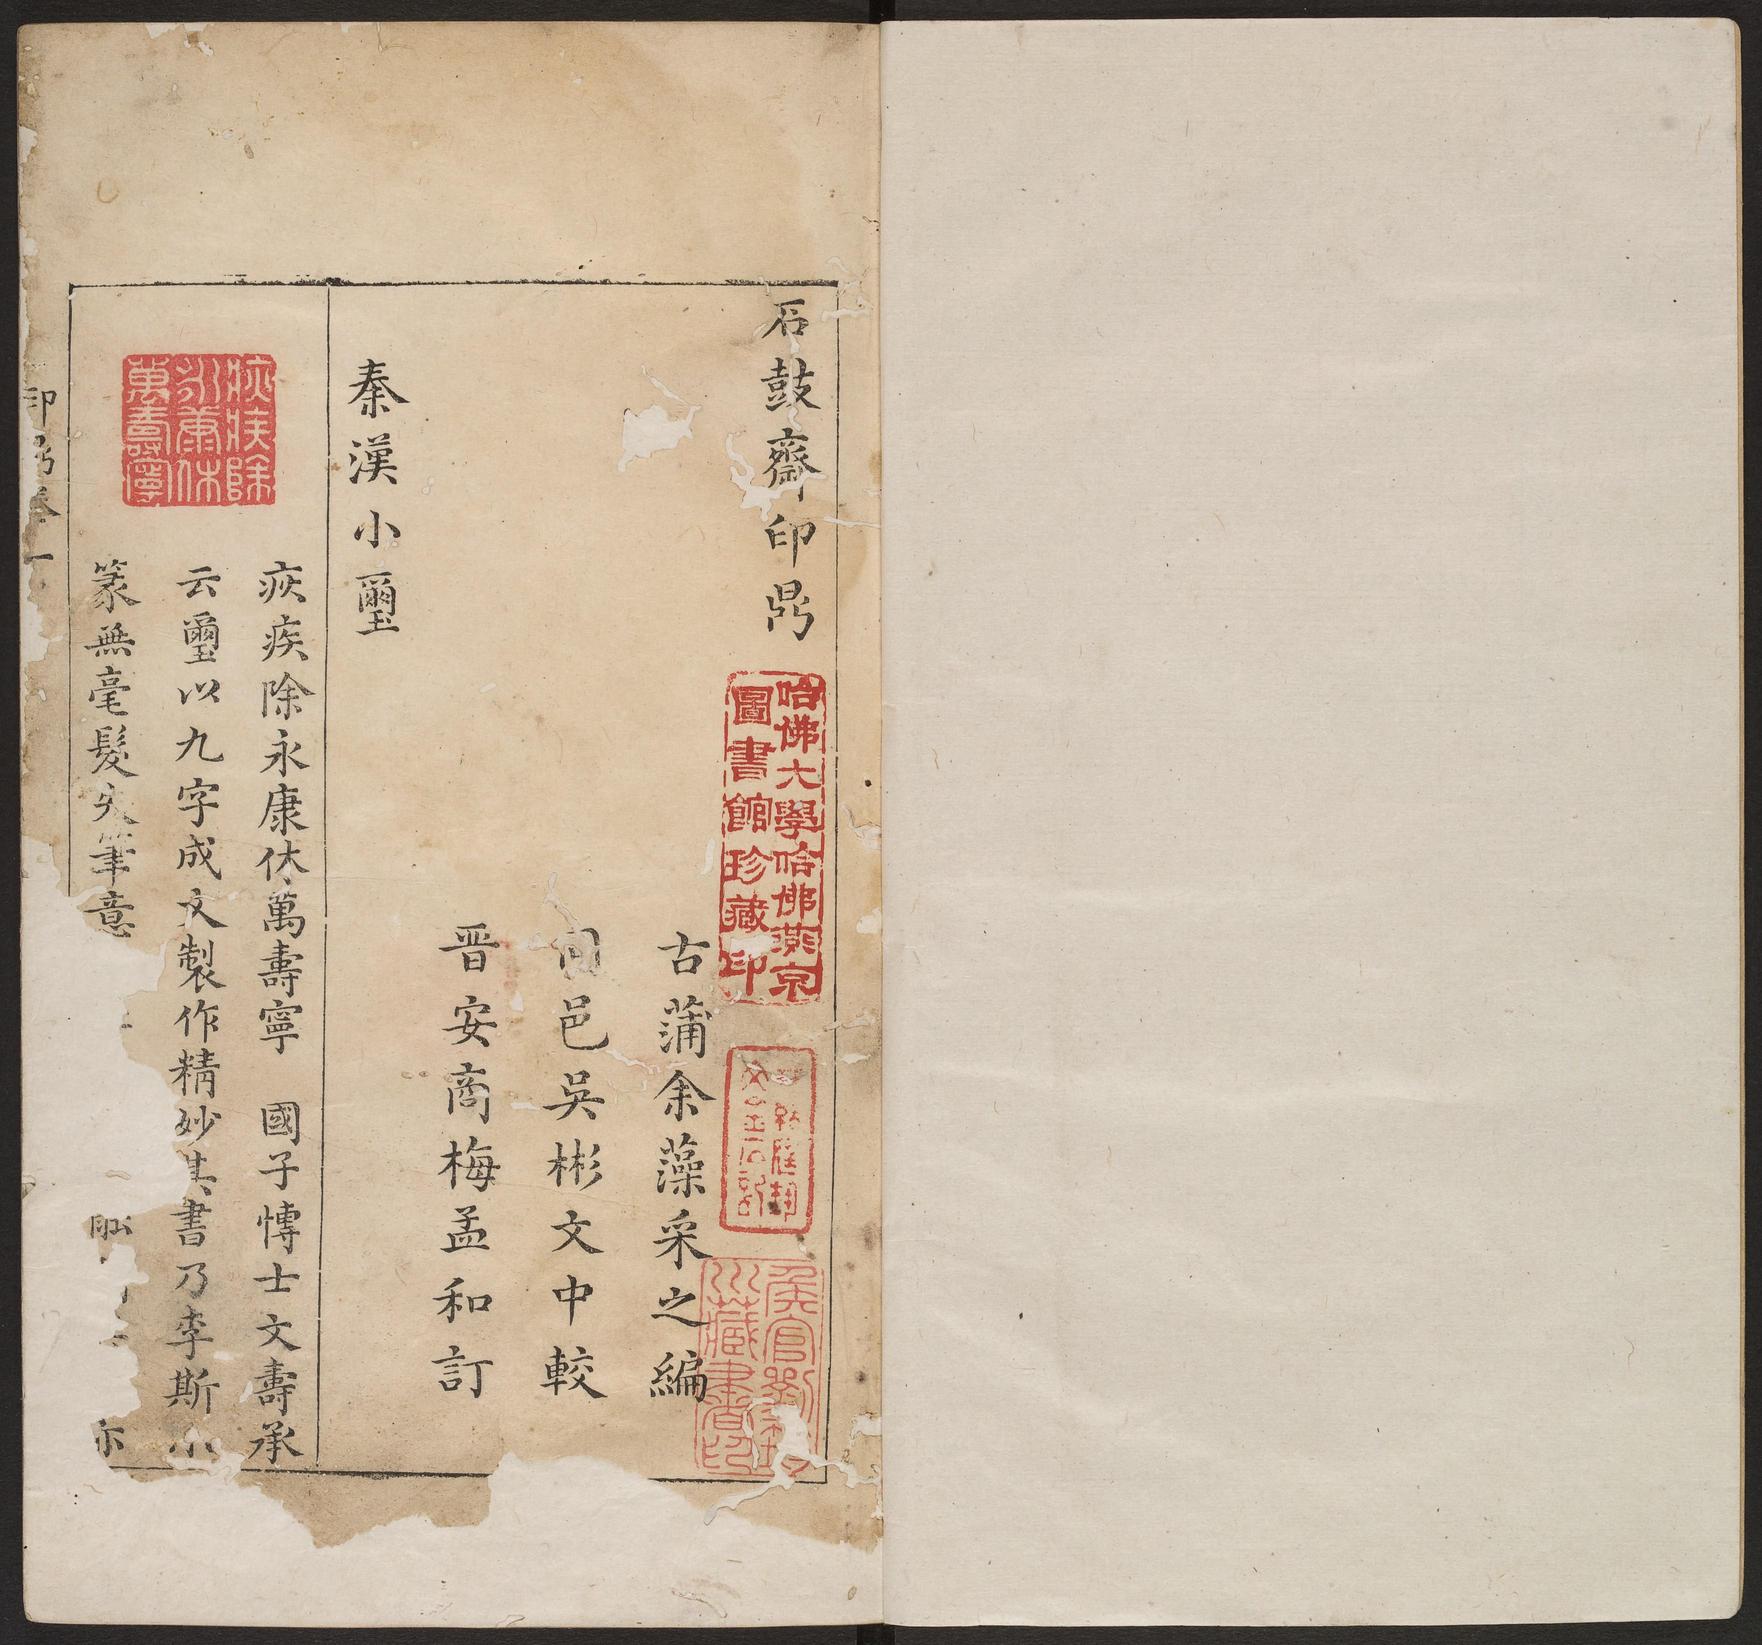 石鼓齋印鼎
哈佛大學哈佛燕京
圖書館珍藏印
侯官劉
藏書印
古蒲余藻采之編
同邑吳彬文中較
晉安商梅孟和訂
秦漢小璽
疢疾除
永康休
萬壽寧
疢疾除永康休萬壽寧 國子博士文壽承
云璽以九字成文製作精妙其書乃李斯小
篆無毫髮失筆意
印鼎卷一